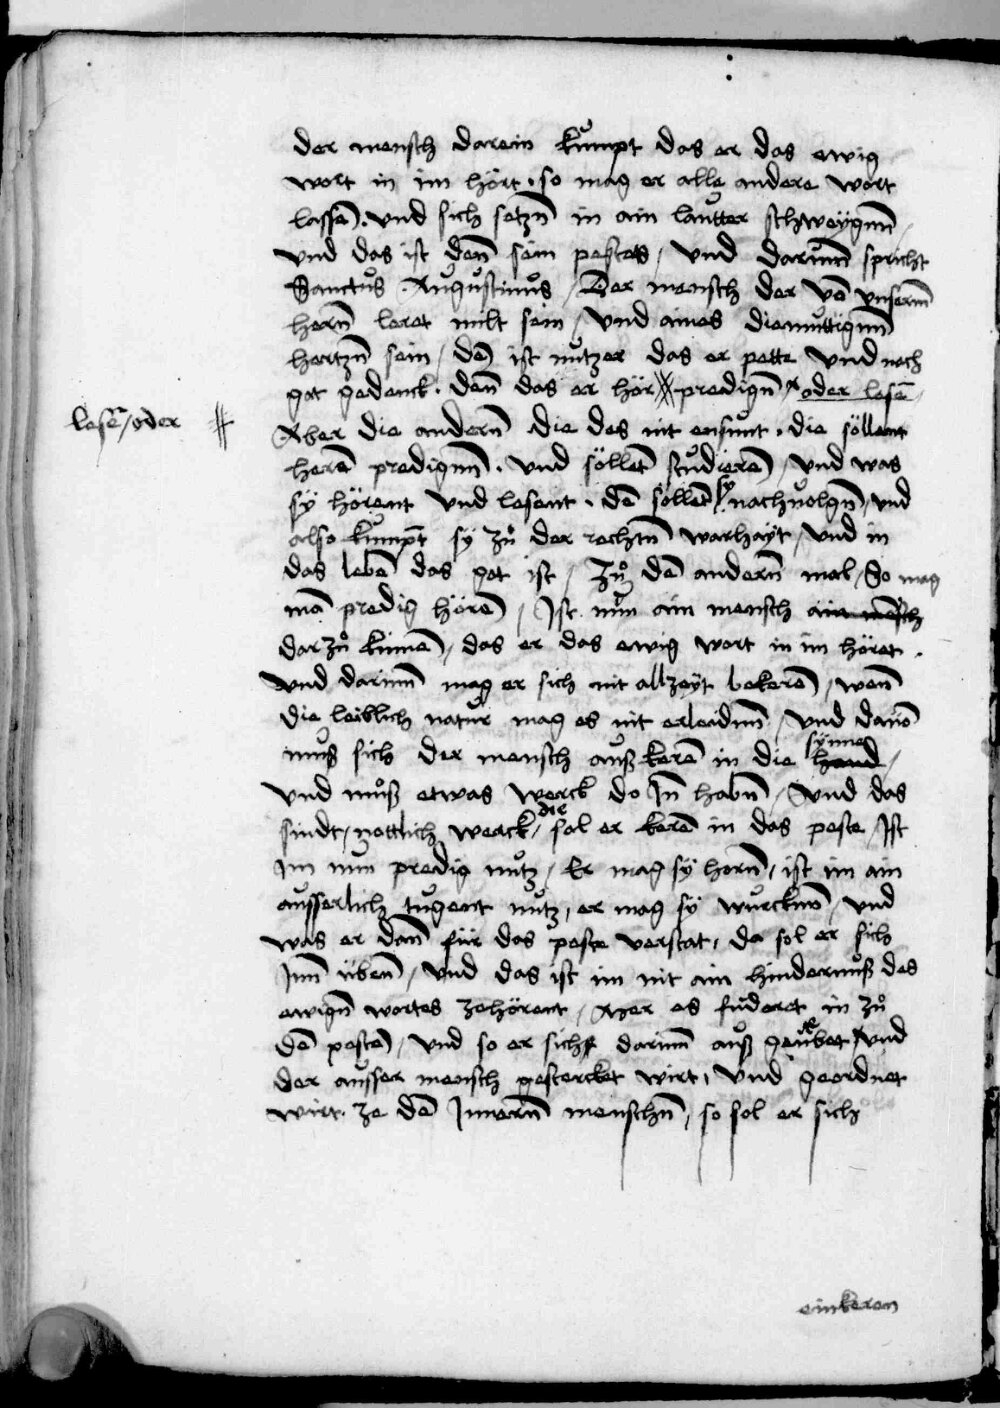 der mensch darein kumpt das er das ewig
wort in im hört · so mag er alle andere wort
lassē · vnd sich setzn̄ in ain lautter schweygnn̄
vnd das ist den̄ sein pestes / vnd darumm̄ spricht
Sanctus Augustinus / Der mensch der vō vnserm̄
hern̄ leret milt sein / vnd aines diemuttignn̄
hertzn̄ sein / dē ist nutzer das er pette vnd nach
got gedenck · den̄ das er hör predign̄ oder lesē
lesē / oder
Aber die andern̄ die des nit ensunt · die söllent
herē predignn̄ · vnd söllēt studierē / vnd was
sy hörent vnd lesent · dē söllēt sy nachuolgn̄ / vnd
also kumpt sy zů der rechtn̄ warhayt / vnd in
das lebē das got ist / Zů dē andern̄ mal / So mag
mā predig hörē / Ist nun ain mensch ain mēsch
darzů kumē / das er das ewig wort in im höret ·
vnd darumm̄ mag er sich nit allzeyt bekerē / wen̄
die leiblich natur mag es nit erleidnn̄ / vnd dauō
muß sich der mensch auß kerē in die hand synne /
vnd můß etwas werck do Jn̄ habn̄ / vnd das
sindt / nottlich werck / die sol er kerē in das peste / Ist
im nun predig nutz / Er mag sy hörn̄ / ist im ain
ausserlich tugent nutz / er mag sy wurcknō / vnd
was er dan̄ für das peste verstat / da sol er sich
Jnn̄ üben̄ / vnd das ist im nit ain hindernuß des
ewign̄ wortes zehörent / Aber es fuderet in zů
dē pestē / vnd so er sich darumm̄ auß geübet / vnd
der ausser mensch gestercket wirt / vnd geordnet
wirt · ze dē Jnnern̄ menschn̄ / so sol er sich
einkeren